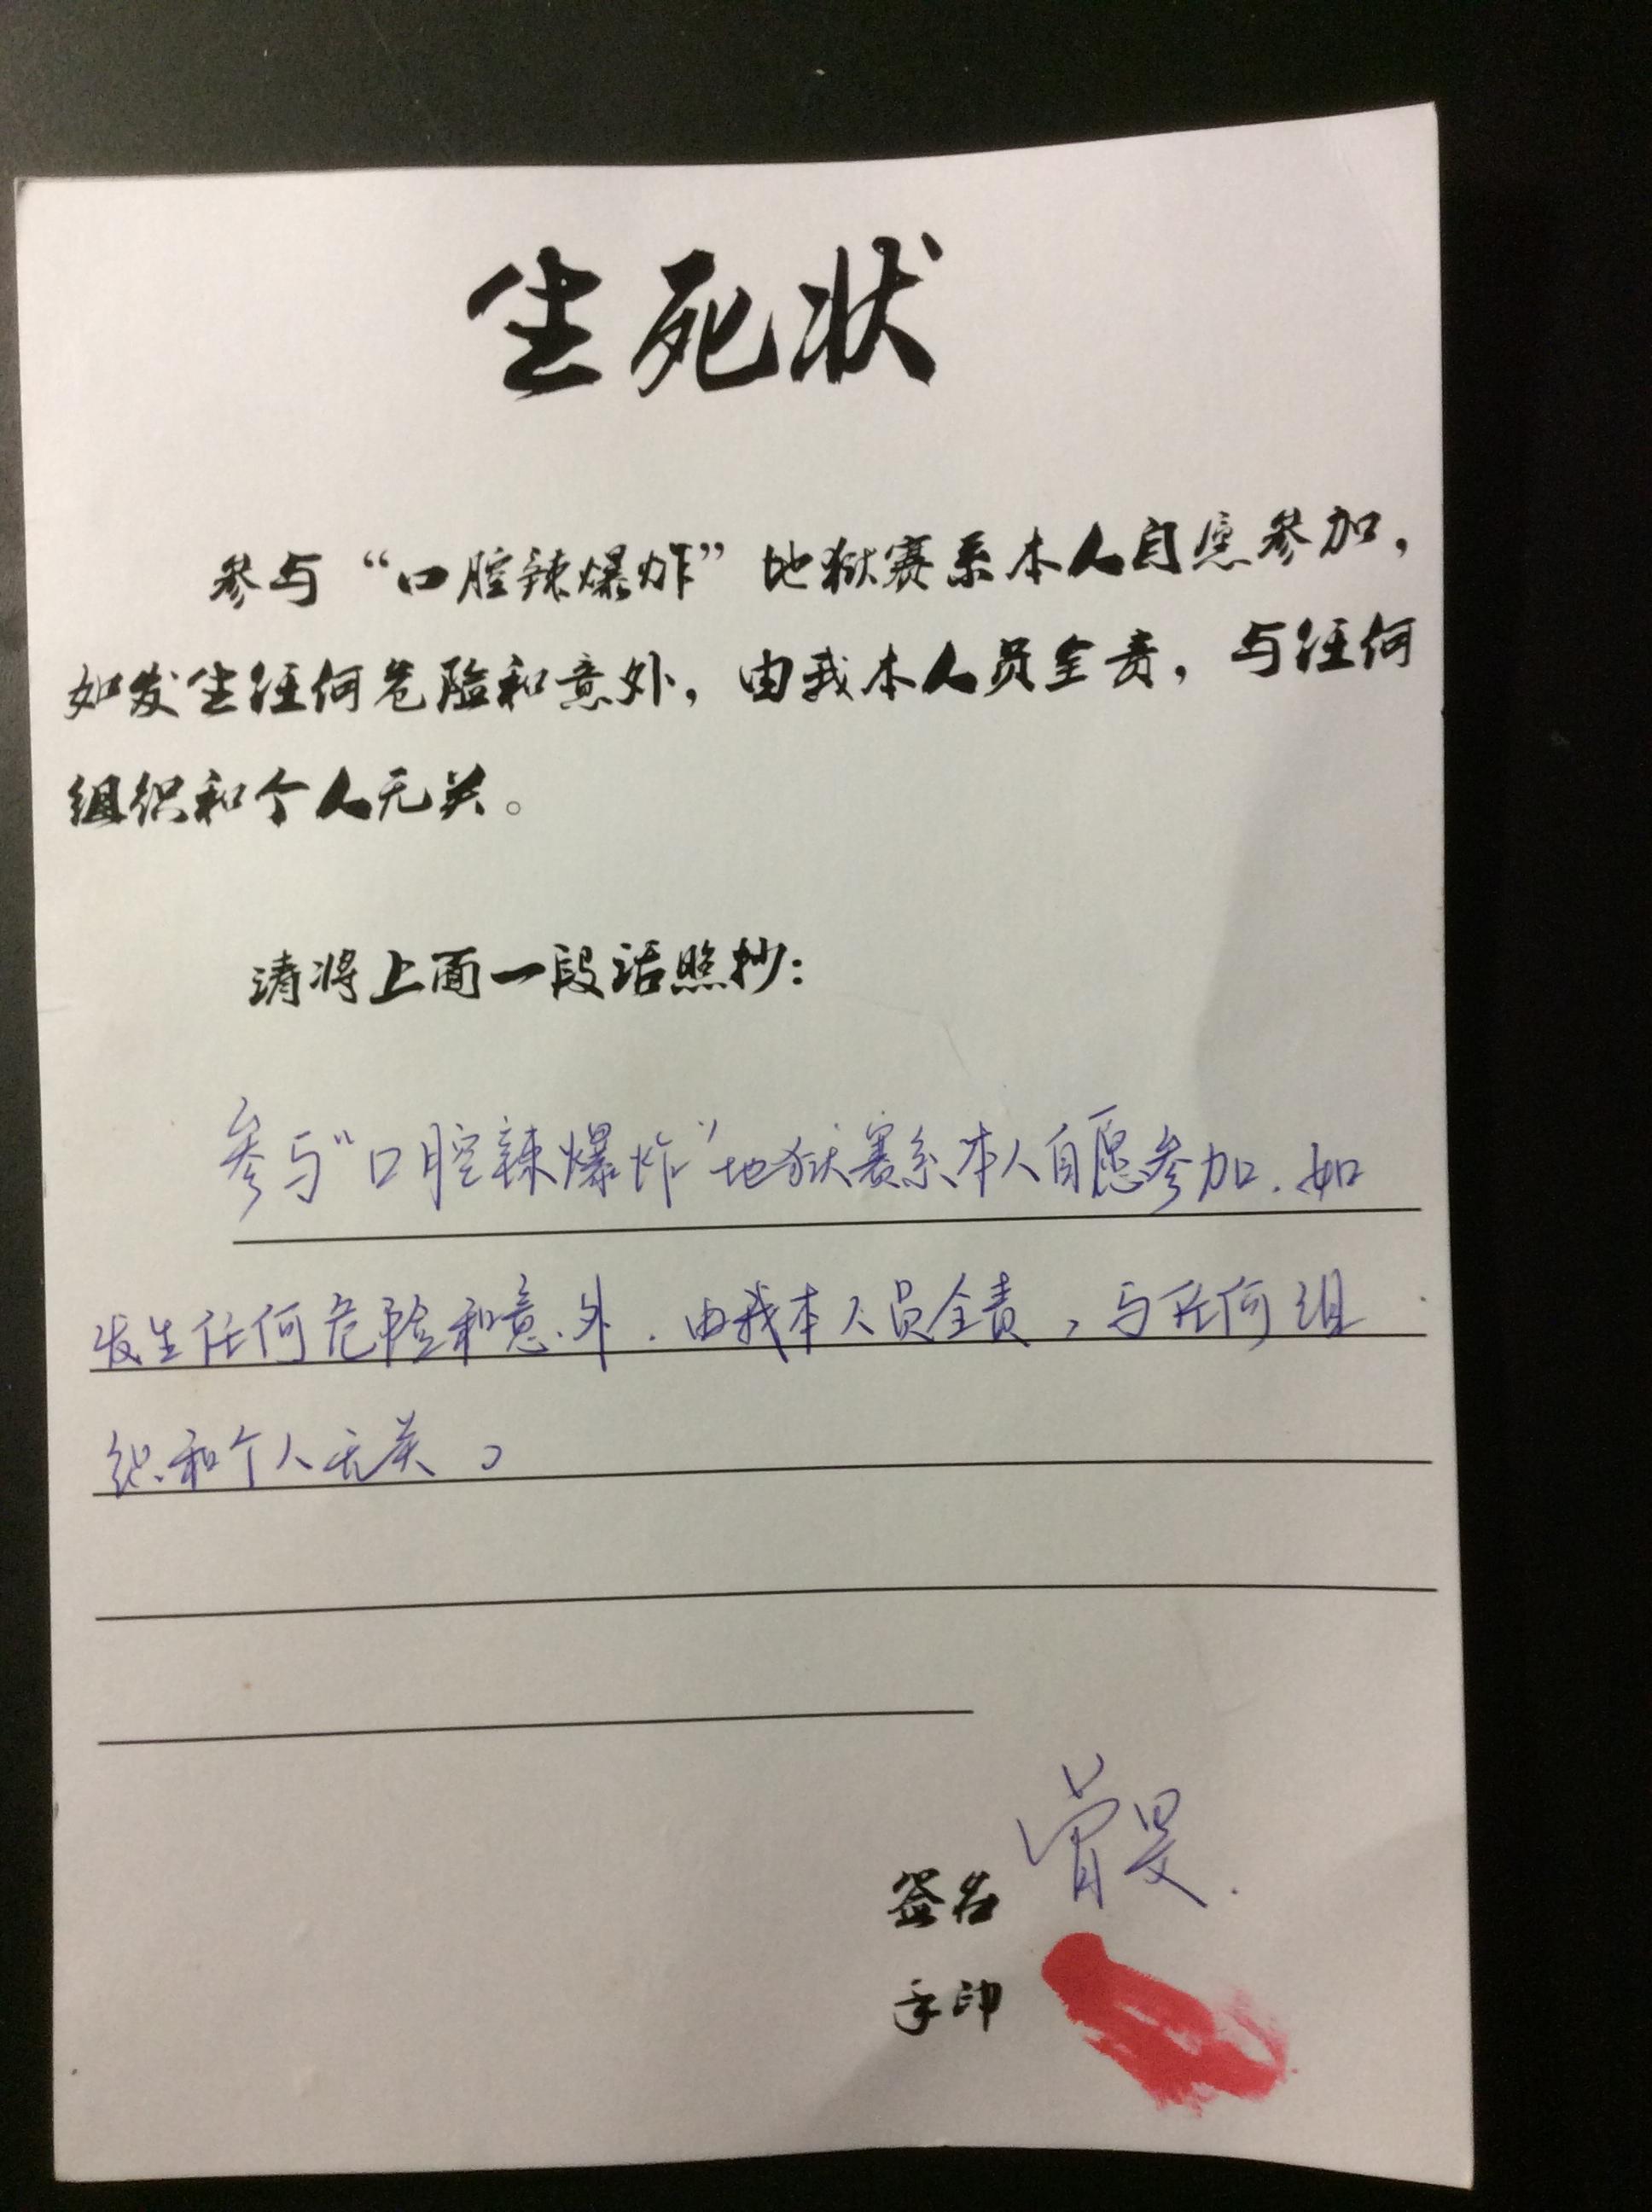 生死状
参与“口腔辣爆炸”地狱赛系本人自愿参加，
如发生任何危险和意外，由我本人员全责，与任何
组织和个人无关。
请将上面一段话照抄：
参与“口腔辣爆炸”地狱赛系本人自愿参加.如
发生任何危险和意外.由我本人员全责，与任何组
织和个人无关。
签名
手印